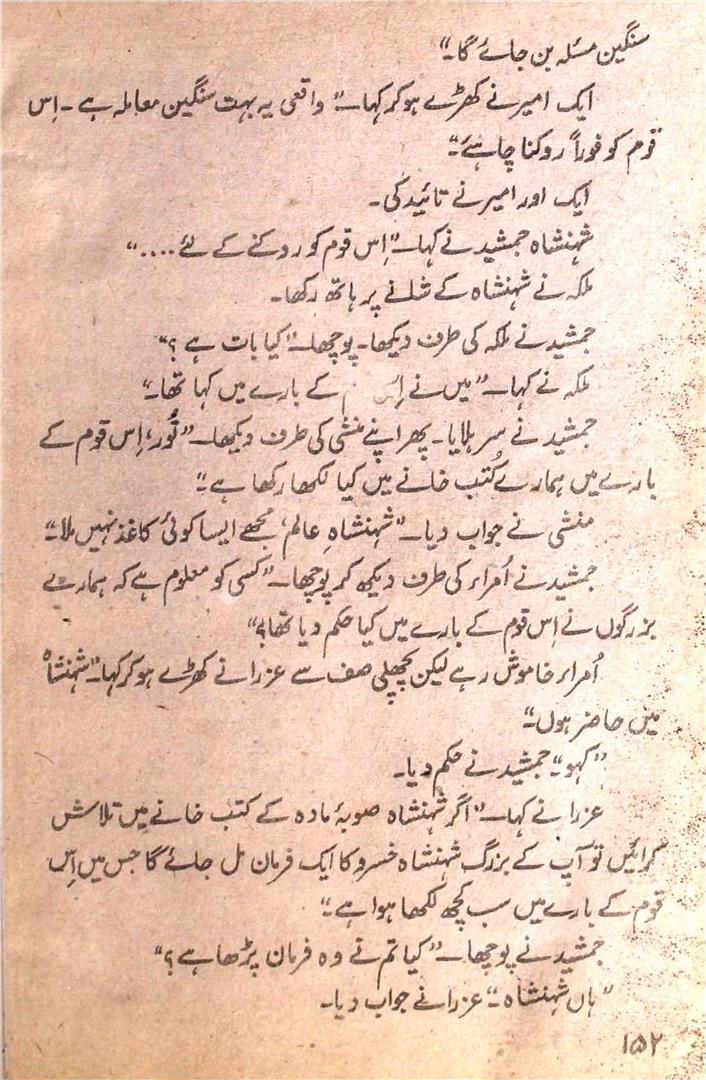 سنگین مسئلہ بن جائے گا۔“
ایک امیر نے کھڑے ہو کر کہا۔”واقعی یہ بہت سنگین معاملہ ہے۔ اِس
قوم کو فوراً روکنا چاہئے۔“
ایک اور امیر نے تائید کی۔
شہنشاہ جمشید نے کہا۔”اِس قوم کو روکنے کے لئے ....“
ملکہ نے شہنشاہ کے شانے پر ہاتھ رکھا۔
جمشید نے ملکہ کی طرف دیکھا۔ پوچھا۔”کیا بات ہے؟“
ملکہ نے کہا۔”میں نے کے بارے میں کہا تھا۔“
جمشید نے سر ہلایا۔ پھر اپنے منشی کی طرف دیکھا۔”تُور، اِس قوم کے
بارے میں ہمارے کُتب خانے میں کیا لکھا رکھا ہے۔“
منشی نے جواب دیا۔”شہنشاہِ عالم، مجھے ایسا کوئی کاغذ نہیں ملا۔“
جمشید نے اُمراء کی طرف دیکھ کر پوچھا۔”کسی کو معلوم ہے کہ ہمارے
بزرگوں نے اِس قوم کے بارے میں کیا حکم دیا تھا؟“
اُمراء خاموش رہے لیکن پچھلی صف سے عزرا نے کھڑے ہو کر کہا۔”شہنشاہ
میں حاضر ہوں۔“
”کہو۔“ جمشید نے حکم دیا۔
عزرا نے کہا۔”اگر شہنشاہ صوبۂ مادہ کے کتب خانے میں تلاش
کرائیں تو آپ کے بزرگ شہنشاہ خسرو کا ایک فرمان مل جائے گا جس میں اِس
قوم کے بارے میں سب کچھ لکھا ہوا ہے۔“
جمشید نے پوچھا۔”کیا تم نے وہ فرمان پڑھا ہے؟“
”ہاں شہنشاہ۔“ عزرا نے جواب دیا۔
۱۵۲